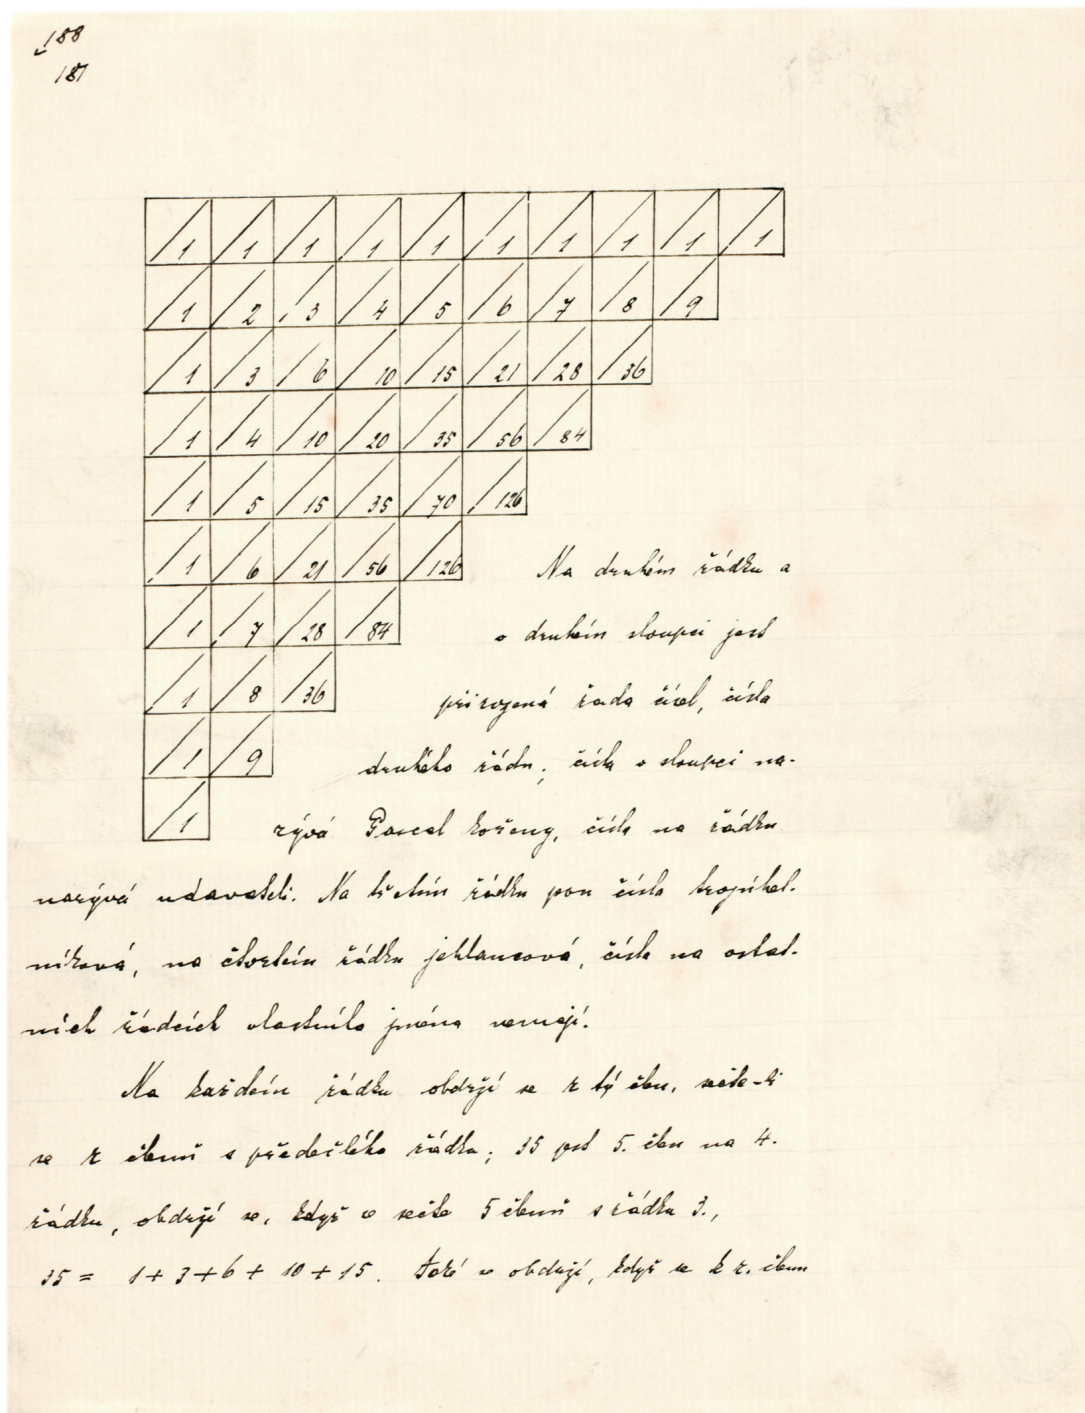 188
187
1 1 1 1 1 1 1 1 1 1
1 2 3 4 5 6 7 8 9
1 3 6 10 15 21 28 36
1 4 10 20 35 56 84
1 5 15 35 70 126
1 6 21 56 126
1 7 28 84
1 8 36
1 9
1
Na druhém řádku a
v druhém sloupci jest
přirozená řada čísel, čísla
druhého řádu; čísla v sloupci na-
zývá Pascal kořeny, čísla na řádku
nazývá udavateli. Na třetím řádku jsou čísla trojúhel-
níková, na čtvrtém řádku jehlancová, čísla na ostat-
ních řádcích vlastního jména nemají.
Na každém řádku obdrží se r tý člen, sečte-li
se r členů s předešlého řádku; 35 jest 5. člen na 4.
řádku, obdrží se, když se sečte 5 členů s řádku 3.,
35 = 1 + 3 + 6 + 10 + 15. Také se obdrží, když se k r. členu